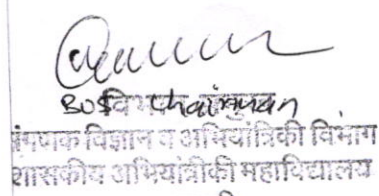 BOS Chairman
विभाग प्रमुख
संगणक विज्ञान व अभियांत्रिकी विभाग
शासकीय अभियांत्रीकी महाविद्यालय